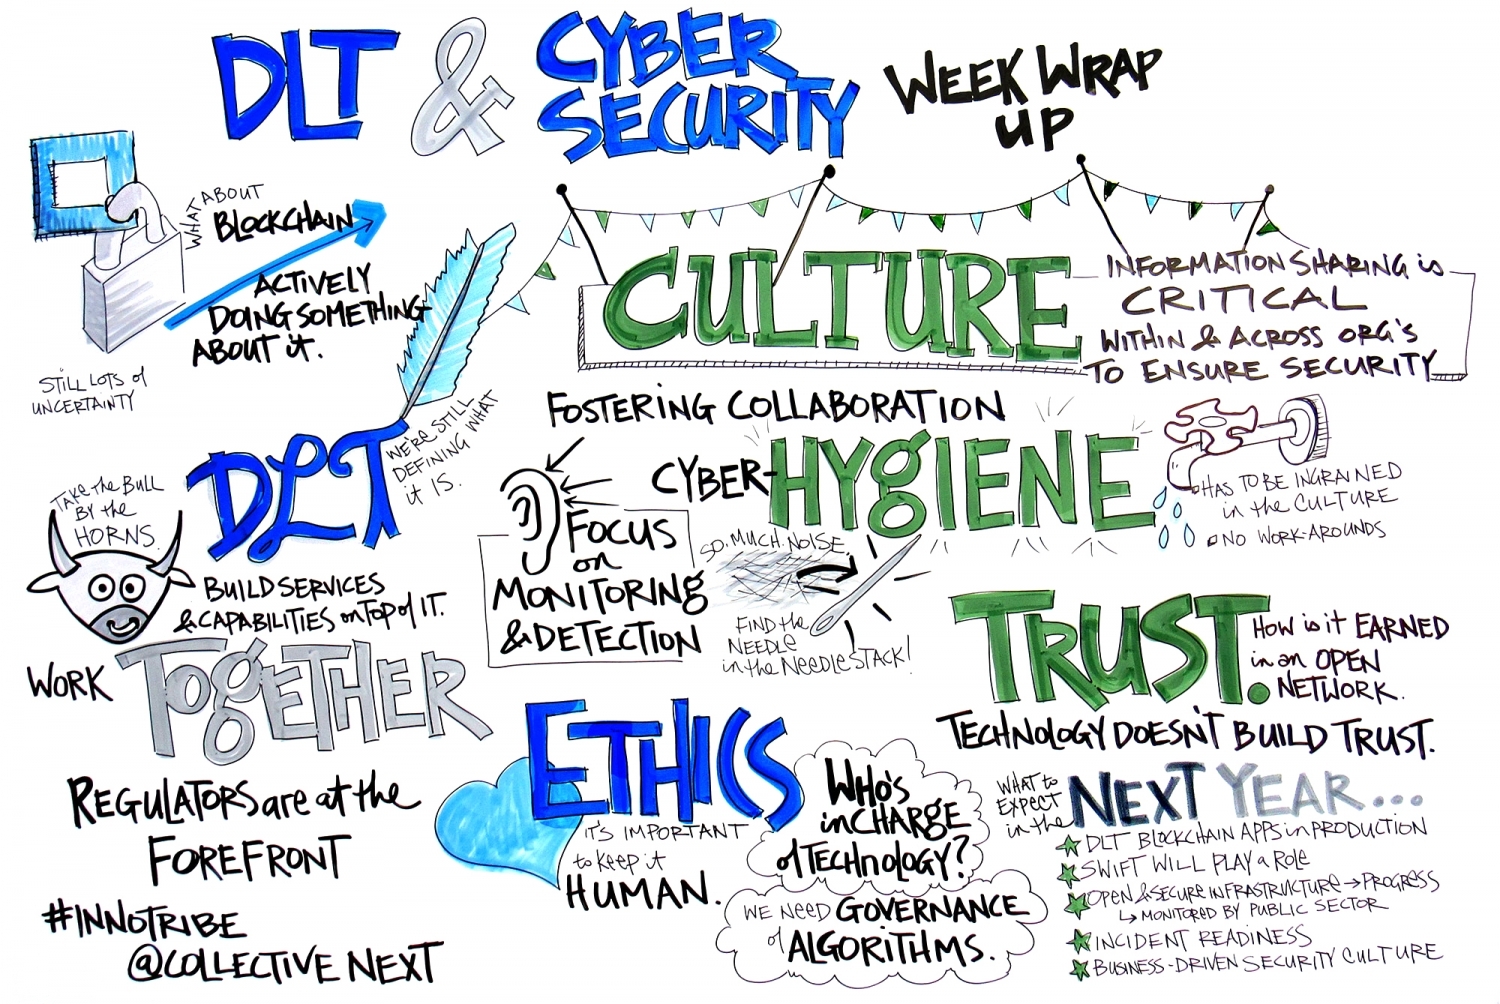 DLT & CYBER
SECURITY
WEEK WRAP
UP
WHAT ABOUT
BLOCKCHAIN
ACTIVELY
DOING SOMETHING
ABOUT it.
STILL LOTS of
UNCERTAINTY
CULTURE
INFORMATION SHARING is
CRITICAL
WITHIN & ACROSS ORG'S
TO ENSURE SECURITY
FOSTERING COLLABORATION
DLT
WE'RE STILL
DEFINING WHAT
it IS.
TAKE the BULL
BY the
HORNS.
BUILD SERVICES
& CAPABILITIES on TOP of IT.
CYBER-HYgIENE
HAS TO BE INGRAINED
in the CULTURE
NO WORK-AROUNDS
FOCUS
on
MONITORING
& DETECTION
SO MUCH NOISE
FIND the
NEEDLE
in the NEEDLESTACK!
TRUST.
HOW is it EARNED
in an OPEN
NETWORK.
TECHNOLOGY DOESN'T BUILD TRUST.
WORK TOgETHER
REGULATORS are at the
FOREFRONT
#INNOTRIBE
@COLLECTIVE NEXT
ETHICS
IT'S IMPORTANT
to keep it
HUMAN.
WHO'S
in CHARGE
of TECHNOLOGY?
WE NEED GOVERNANCE
of ALGORITHMS.
WHAT to
EXPECT
in the
NEXT YEAR...
DLT BLOCKCHAIN APPS in PRODUCTION
SWIFT WILL PLAY a ROLE
OPEN & SECURE INFRASTRUCTURE → PROGRESS
↳ MONITORED BY PUBLIC SECTOR
INCIDENT READINESS
BUSINESS-DRIVEN SECURITY CULTURE